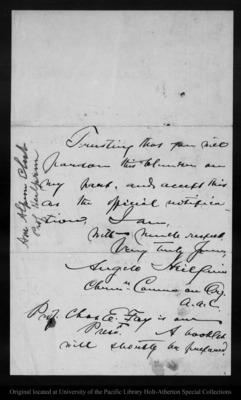 Trusting that you will
pardon this blunder on
my part, and accept this
as the official notifica-
tion, I am,
with much respect,
Very truly yours,
Angelo Heilprin
Chmn. Comm. on Org.
A.A.C.
Prof. Chas. E. Fay is our
Prest. A booklet
will shortly be prepared
Am. Alpine Club
Prof Heilprin
Original located at University of the Pacific Library Holt-Atherton Special Collections